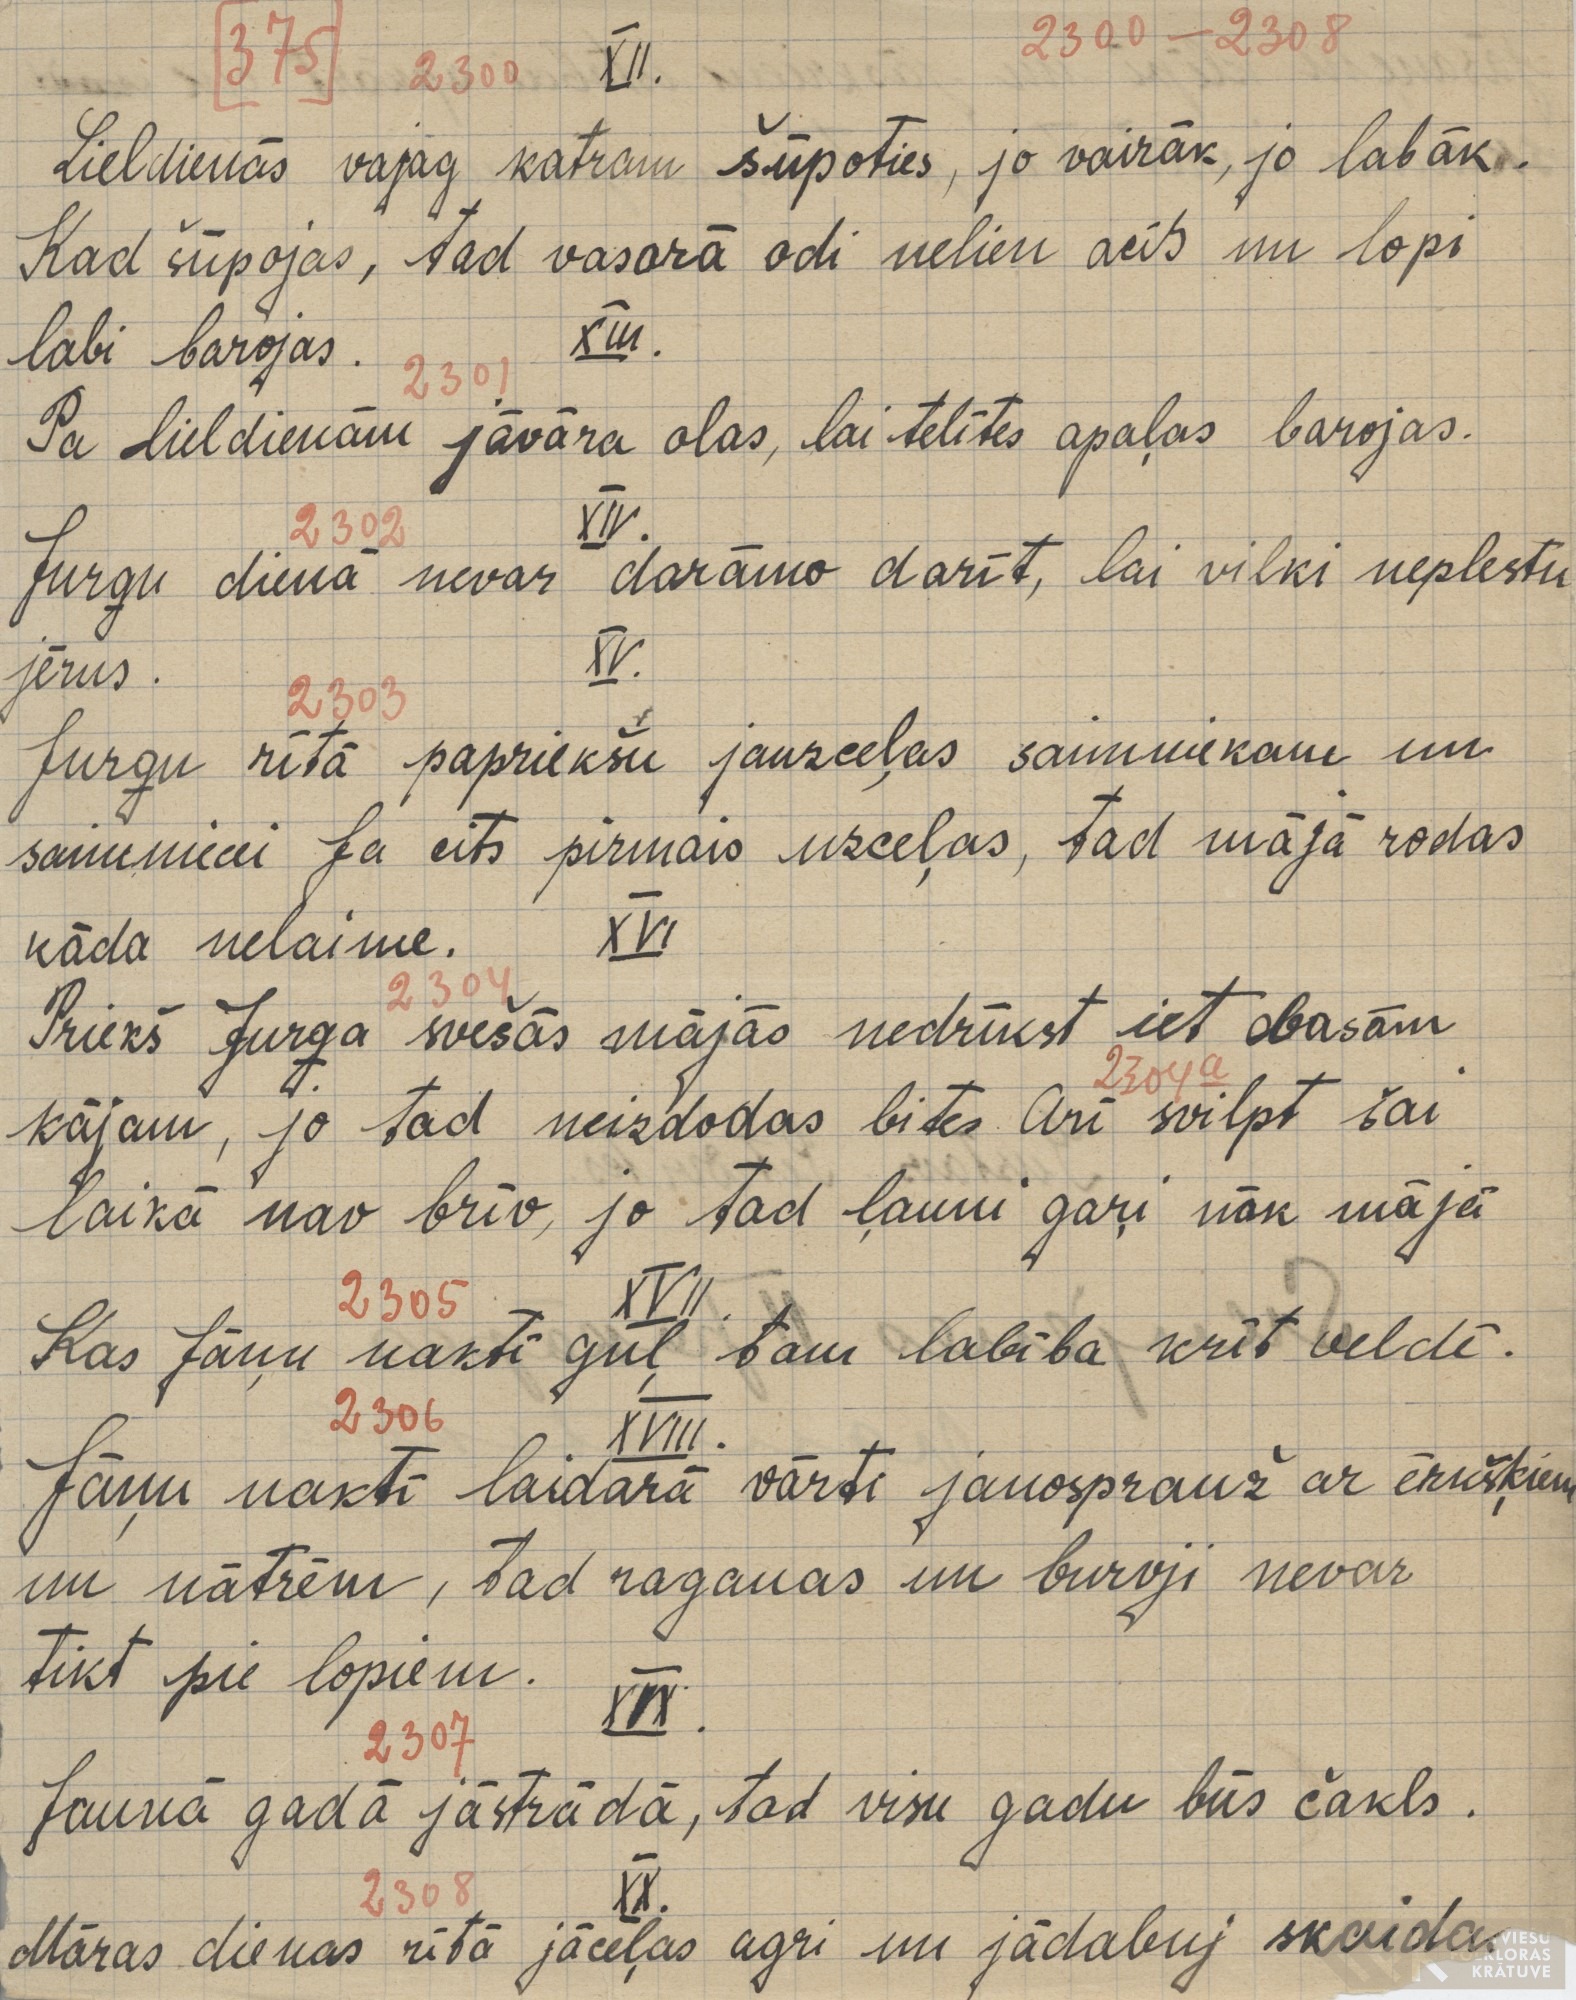 [375] 2300 XII. 2300–2308
Lieldienās vajag katram šūpoties, jo vairāk, jo labāk.
Kad šūpojas, tad vasarā odi nelien acīs un lopi
labi barojas. XIII.
2301
Pa Lieldienām jāvāra olas, lai telītes apaļas barojas.
2302 XIV.
Jurgu dienā nevar darāmo darīt, lai vilki neplestu
jērus. XV.
2303
Jurgu rītā papriekšu jauzceļas saimniekam un
saimniecei Ja cits pirmais uzceļas, tad mājā rodas
kāda nelaime. XVI
2304
Priekš Jurga svešās mājās nedrīkst iet basām
2304a
kājam, jo tad neizdodas bites. Arī svilpt šai
laikā nav brīv, jo tad ļauni gaŗi nāk mājā
2305 XVII.
Kas Jāņu naktī guļ tam labība krīt veldē.
2306 XVIII.
Jāņu naktī laidarā vārti janosprauž ar ērušķiem
un nātrēm, tad raganas un burvji nevar
tikt pie lopiem. XIX.
2307
Jaunā gadā jāstrādā, tad visu gadu būs čakls.
2308 XX.
Māras dienas rītā jāceļas agri un jādabuj skaidas
LATVIEŠU
FOLKLORAS
KRĀTUVE